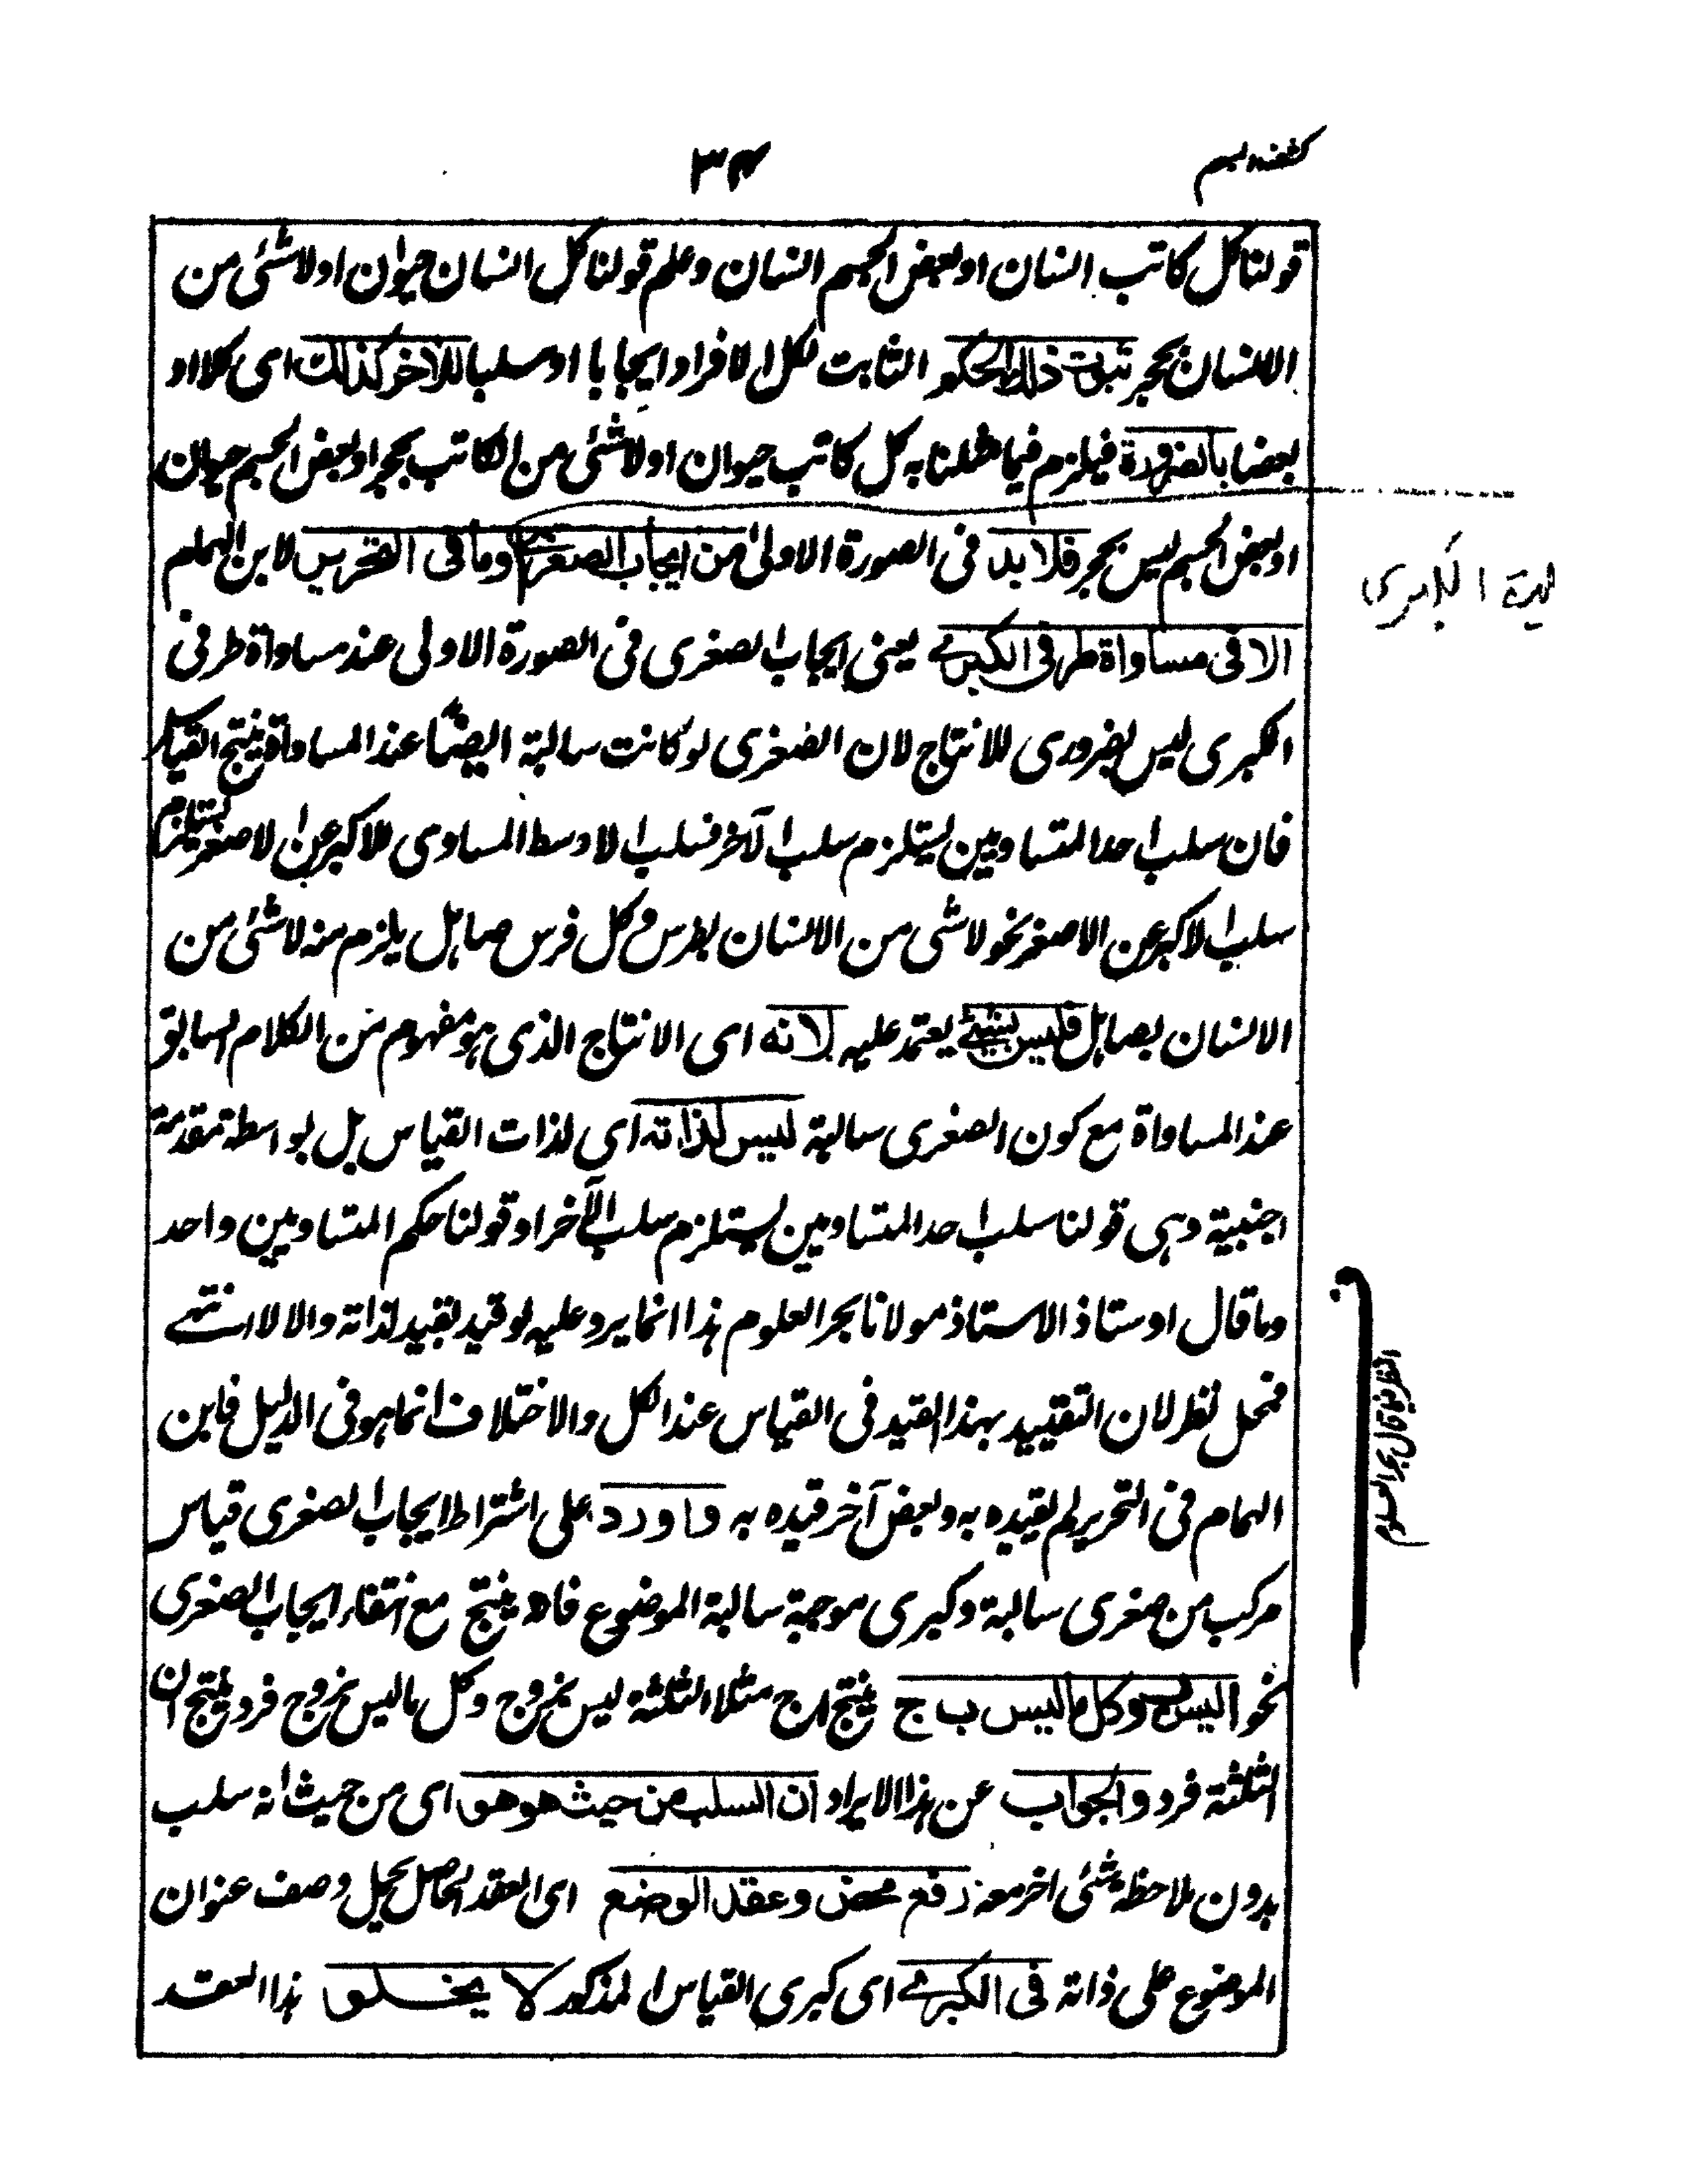 كشف المبهم
٣٤
قولنا كل كاتب انسان او بعض الجسم انسان وعلم قولنا كل انسان حيوان او لاشئ من
الانسان بحجر ثبوت ذلك الحكم الثابت لكل الافراد ايجابا او سلبا للاخر كذلك اى كلا او
بعضا بالضرورة فيلزم فيما مثلنا به كل كاتب حيوان او لاشئ من الكاتب بحجر او بعض الجسم حيوان
او بعض الجسم ليس بحجر فلا بد فى الصورة الاولى من ايجاب الصغرى وما فى التحرير لابن الهمام
الا فى مساواة طرفى الكبرى يعنى ايجاب الصغرى فى الصورة الاولى عند مساواة طرفى
الكبرى ليس بضرورى للانتاج لان الصغرى لو كانت سالبة ايضا عند المساواة ينتج القياس
فان سلب احد المتساويين يستلزم سلب الآخر فسلب الاوسط المساوى للاكبر عن الاصغر يستلزم
سلب الاكبر عن الاصغر نحو لاشى من الانسان بفرس وكل فرس صاهل يلزم منه لاشئ من
الانسان بصاهل فليس بشئ يعتمد عليه لانه اى الانتاج الذى هو مفهوم من الكلام السابق
عند المساواة مع كون الصغرى سالبة ليس لذاته اى لذات القياس بل بواسطة مقدمة
اجنبية وهى قولنا سلب احد المتساويين يستلزم سلب الآخر او قولنا حكم المتساويين واحد
وما قال اوستاذ الاستاذ مولانا بحر العلوم هذا انما يرد عليه لو قيد بقيد لذاته والا لا انتهى
فمحل نظر لان التقييد بهذا القيد فى القياس عند الكل والاختلاف انما هو فى الدليل فابن
الهمام فى التحرير لم يقيده به وبعض آخر قيده به وما ورد على اشتراط ايجاب الصغرى قياس
مركب من صغرى سالبة وكبرى موجبة سالبة الموضوع فانه ينتج مع انتفاء ايجاب الصغرى
نحو ا ليس ب وكل ما ليس ب ج ينتج ا ج مثلا الثلثة ليس بزوج وكل ما ليس بزوج فرد ينتج ان
الثلثة فرد والجواب عن هذا الايراد ان السلب من حيث هو هو اى من حيث انه سلب
بدون ملاحظة شئى اخر معه رفع محض وعقد الوضع اى العقد الحاصل بحمل وصف عنوان
الموضوع على ذاته فى الكبرى اى كبرى القياس المذكور لا يخلو هذا العقد
النظر فيما قال بحر العلوم